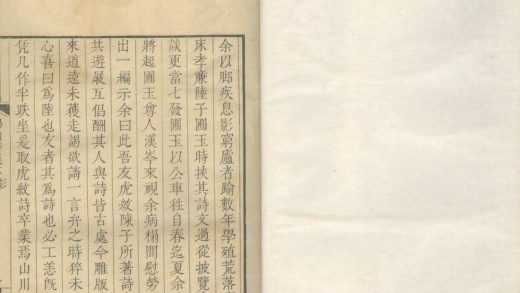 余以脚疾息影窮廬者踰數年學殖荒落
床孝亷陸子圃玉時挾其詩文過從披覽
談更當七發圃玉以公車徃自春迄夏余
將起圃玉尊人漢岑來視余病榻間慰勞
出一編示余曰此吾友虎紋陳子所著詩
共遊屐互倡酬其人與詩皆古處今雕版
來道遠未獲走謁欲請一言弁之時猝未
心喜曰爲陸也友者其爲詩也必工恙旣
凭几作半趺坐爰取虎紋詩卒業焉山川